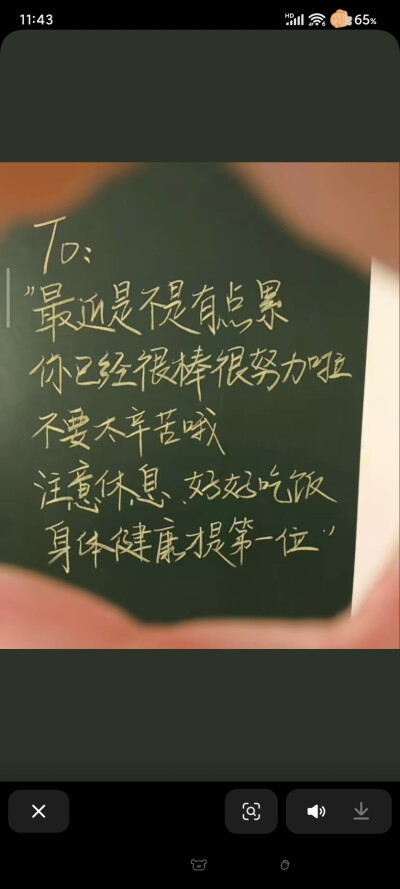 11:43
HD
6
65%
To:
"最近是不是有点累
你已经很棒很努力啦
不要太辛苦哦
注意休息、好好吃饭
身体健康才是第一位"